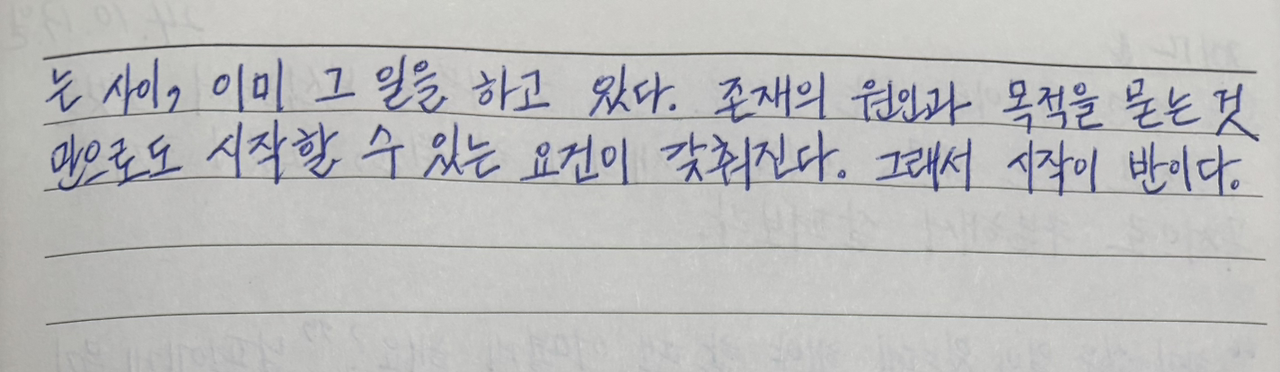 는 사이, 이미 그 일을 하고 있다. 존재의 원인과 목적을 묻는 것
만으로도 시작할 수 있는 요건이 갖춰진다. 그래서 시작이 반이다.